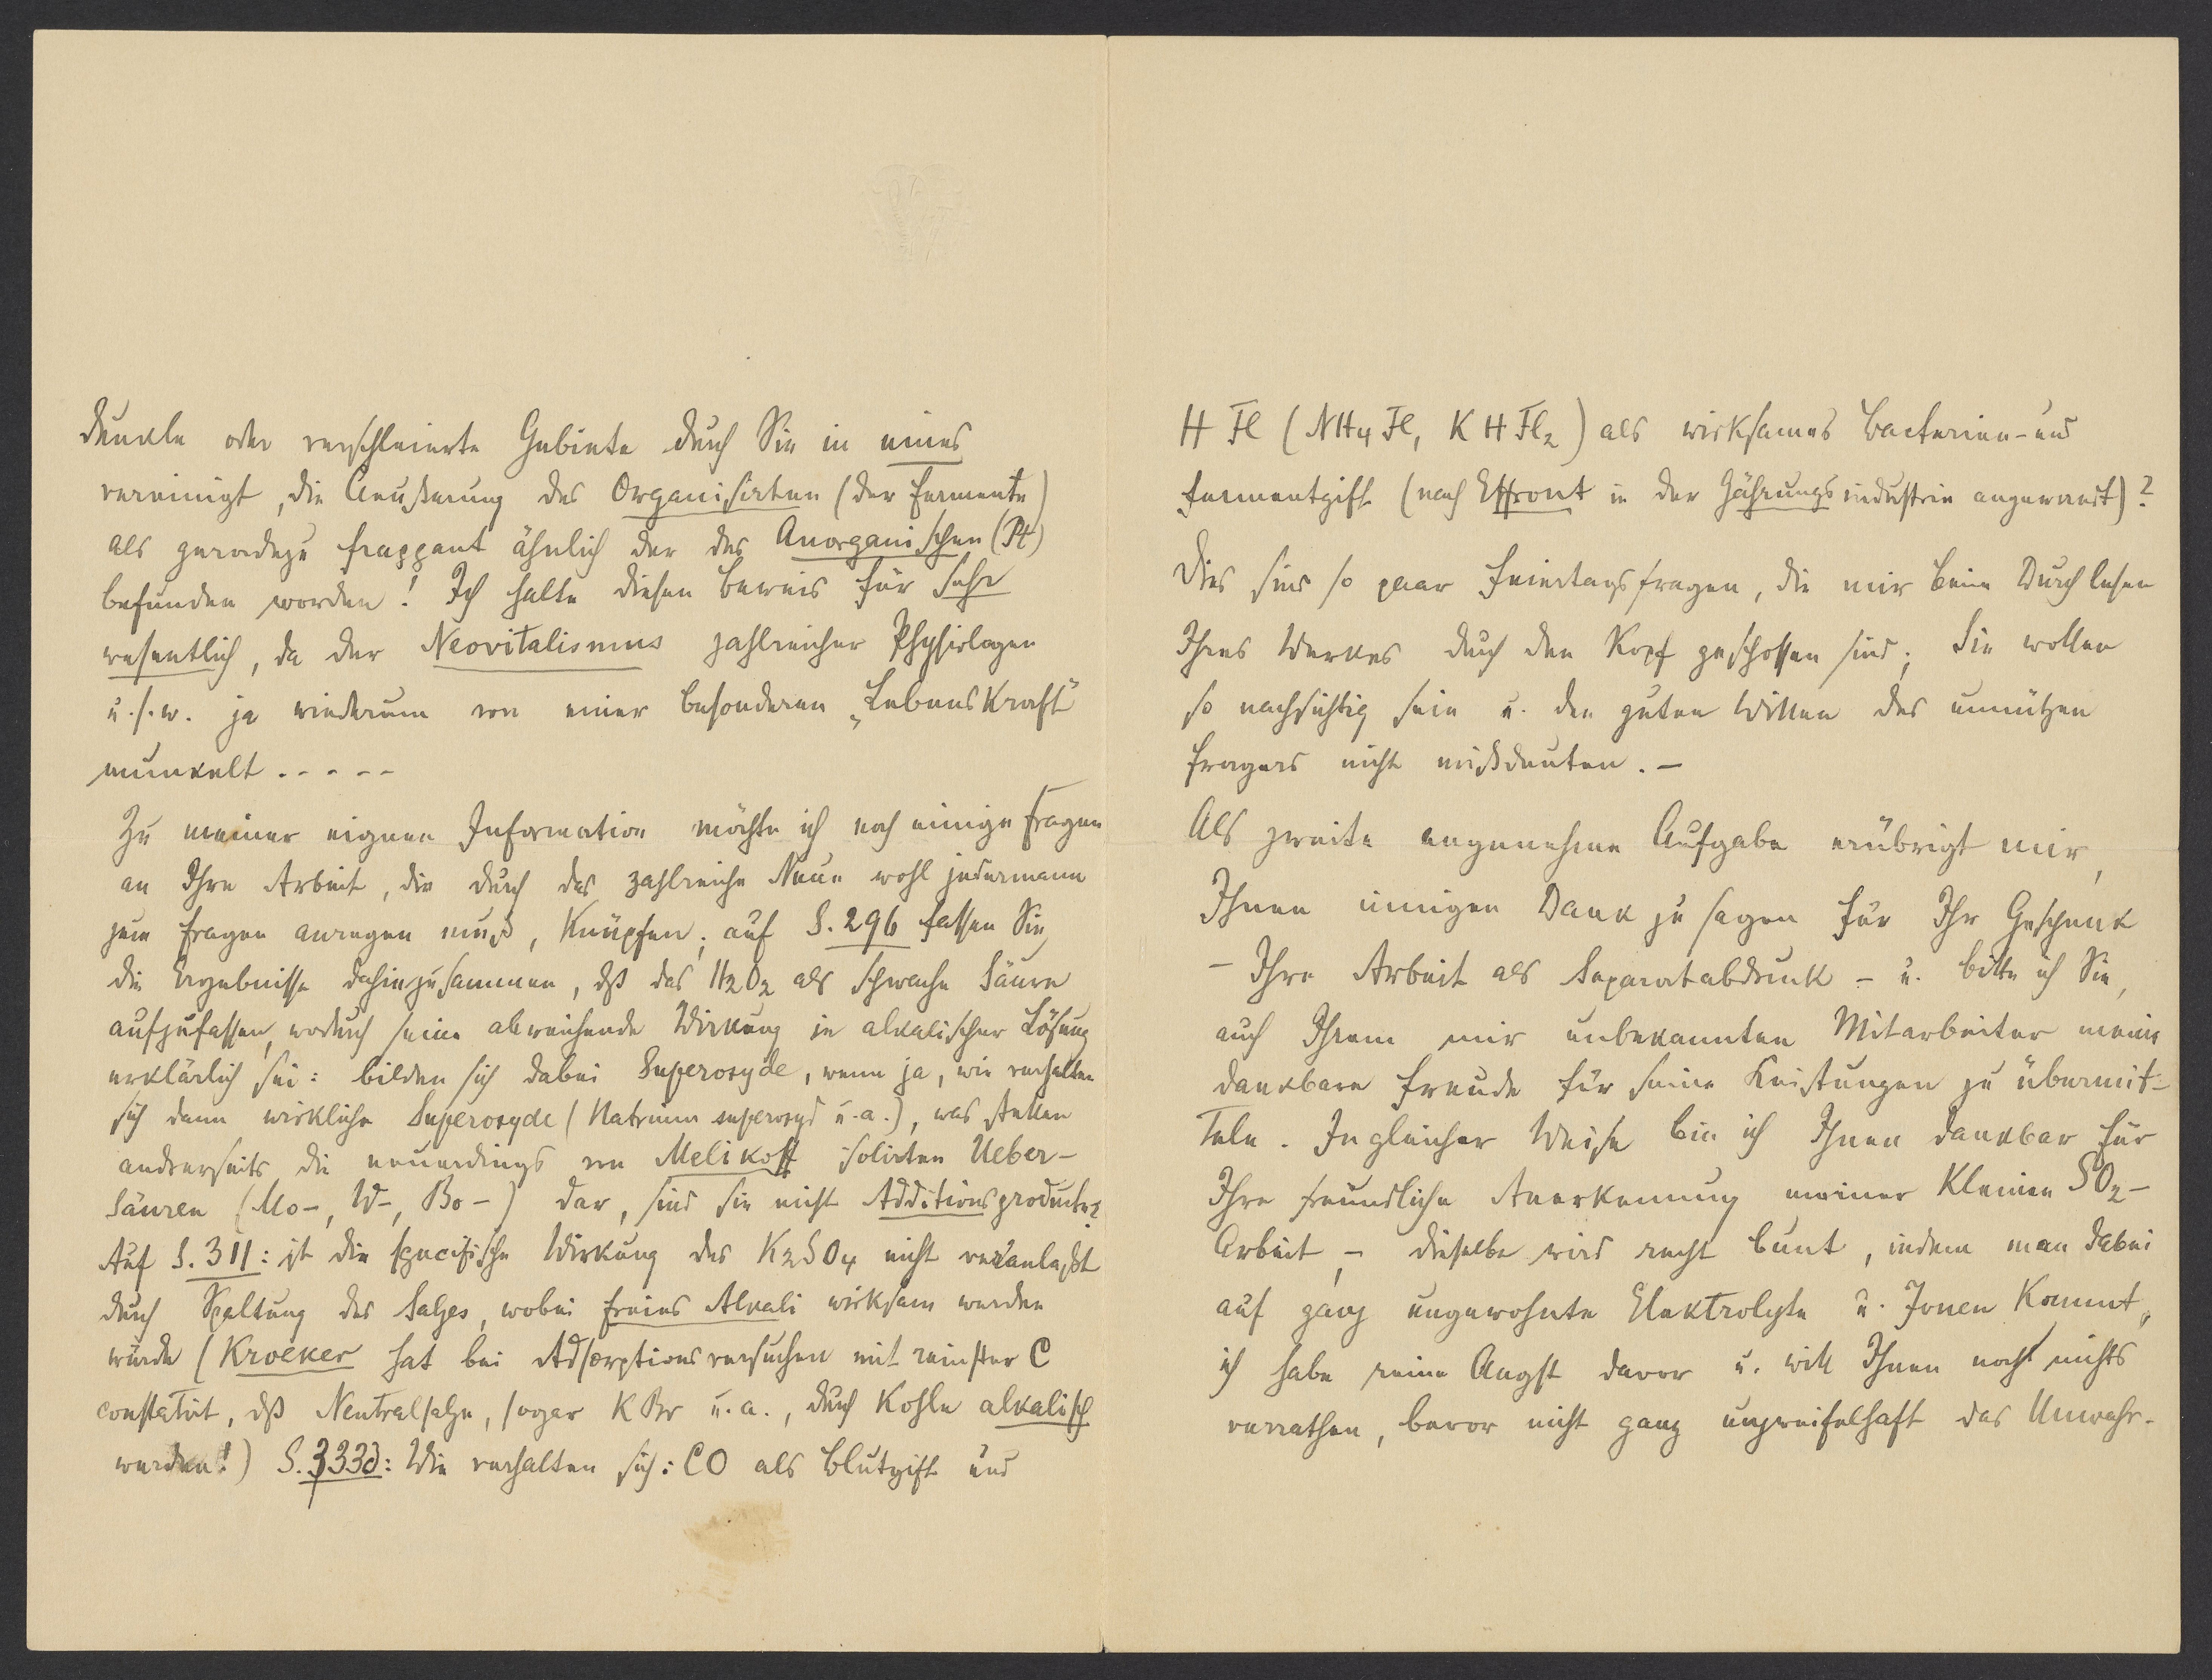 dunkle oder verschleierte Gebiete durch Sie in eines
vereinigt, die Aeußerung des Organisirten (der Fermente)
als geradezu frappant ähnlich der des Anorganischen (Pt)
befunden worden! Ich halte diesen Beweis für sehr
wesentlich, da der Neovitalismus zahlreicher Physiologen
u.s.w. ja wiederum von einer besonderen „Lebenskraft"
munkelt.....
Zu meiner eignen Information möchte ich noch einige Fragen
an Ihre Arbeit, die durch das zahlreiche Neue wohl jedermann
zum Fragen anregen muß, knüpfen; auf S. 296 fassen Sie
die Ergebnisse dahin zusammen, dß das H2O2 als schwache Säure
aufzufassen, wodurch seine abweichende Wirkung in alkalischer Lösung
erklärlich sei: bilden sich dabei Superoxyde, wenn ja, wie verhalten
sich dann wirkliche Superoxyde (Natriumsuperoxyd u.a.), was stellen
andrerseits die neuerdings von Melikoff isolirten Ueber-
säuren (Mo-, W-, Bo-) dar, sind sie nicht Additionsproducte?
Auf S. 311: ist die specifische Wirkung des K2SO4 nicht veranlaßt
durch Spaltung des Salzes, wobei freies Alkali wirksam werden
würde (Kroeker hat bei Adsorptionsversuchen mit reinster C
constatirt, dß Neutralsalze, sogar KBr u.a., durch Kohle alkalisch
werden!) S. 333d: Wie verhalten sich: CO als Blutgift und
H Fl (NH4Fl, KHFl2) als wirksames Bacterien- und
Fermentgift (nach Effront in der Gährungsindustrie angewandt)?
Dies sind so paar Feiertagsfragen, die mir beim Durchlesen
Ihres Werkes durch den Kopf geschossen sind; Sie wollen
so nachsichtig sein u. den guten Willen des unnützen
Fragers nicht mißdeuten. –
Als zweite angenehme Aufgabe erübrigt mir,
Ihnen innigen Dank zu sagen für Ihr Geschenk
– Ihre Arbeit als Separatabdruck – u. bitte ich Sie,
auch Ihrem mir unbekannten Mitarbeiter meine
dankbare Freude für seine Leistungen zu übermit-
teln. In gleicher Weise bin ich Ihnen dankbar für
Ihre freundliche Anerkennung meiner kleinen SO2-
Arbeit, – dieselbe wird recht bunt, indem man dabei
auf ganz ungewohnte Elektrolyte u. Jonen kommt,
ich habe keine Angst davor u. will Ihnen noch nichts
verrathen, bevor nicht ganz unzweifelhaft das Unwahr-